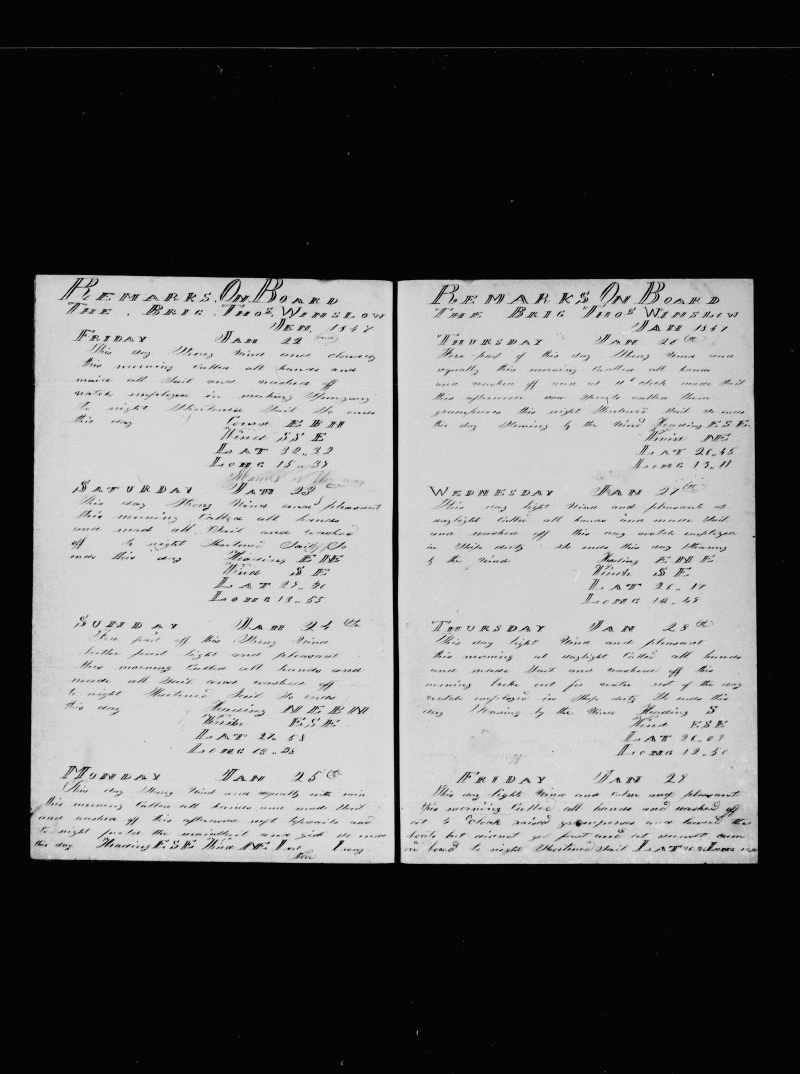 REMARKS. ON. BOARD
THE. BRIG. THOS. WINSLOW
JEN. 1847
FRIDAY JAN 22 nd
This day Strong Wind and cloudy
this morning Called all hands and
maid all Sail and washed off
watch employed in making Spunyarn
to night Shortened Sail So ends
this day E B N
Wind SS E
LAT 32..32
LONG 15..37
SATURDAY JAN 23
This day Strong Wind and pleasant
this morning Called all hands
and mad all Sail and washed
off to night Shortened Sail So
ends this day Heading E N E
Wind S E
LAT 29..20
LONG 13..55
SUNDAY JAN 24 th
Fore part off this Strong Wind
latter part light and pleasant
this morning Called all hands and
made all Sail and washed off
to night Shortened Sail So ends
this day Heading N E B N
Wind ESE
LAT 27..58
LONG 13..28
MONDAY JAN 25 th
This day Strong Wind and squally with rain
this morning Called all hands and made Sail
and washed off this afternoon reeft topsails and
to night furled the mainsail and gib So ends
this day Heading ESE Wind NE Lat Long
REMARKS ON BOARD
THE BRIG THOS WINSLOW
JAN 1847
THURSDAY JAN 26 th
Fore part of this day Strong Wind and
squally this morning Called all hands
and washed off and at 11 Clock made Sail
this afternoon saw Spouts called them
grampuses this night Shortened Sail So ends
this day Steering by the Wind Heading ESE
Wind NE
LAT 26..45
LONG 13..11
WEDNESDAY JAN 27 th
This day light Wind and pleasant at
daylight Called all hands and made Sail
and washed off this day watch employed
in Ships duty So ends this day Steering
by the Wind Heading ENE
Wind S E
LAT 26..17
LONG 12..48
THURSDAY JAN 28 th
This day light Wind and pleasant
this morning at daylight Called all hands
and made Sail and washed off this
morning broke out for water rest of the day
watch employed in Ships duty So ends this
day Steering by the Wind Heading S
Wind ESE
LAT 26..09
LONG 12..50
FRIDAY JAN 29
This day light Wind and calm and pleasant
this morning Called all hands and washed off
at Clock raised grampuses and lowered the
boats but did not get fast and at sunset came
on board to night Shortened Sail LAT LONG